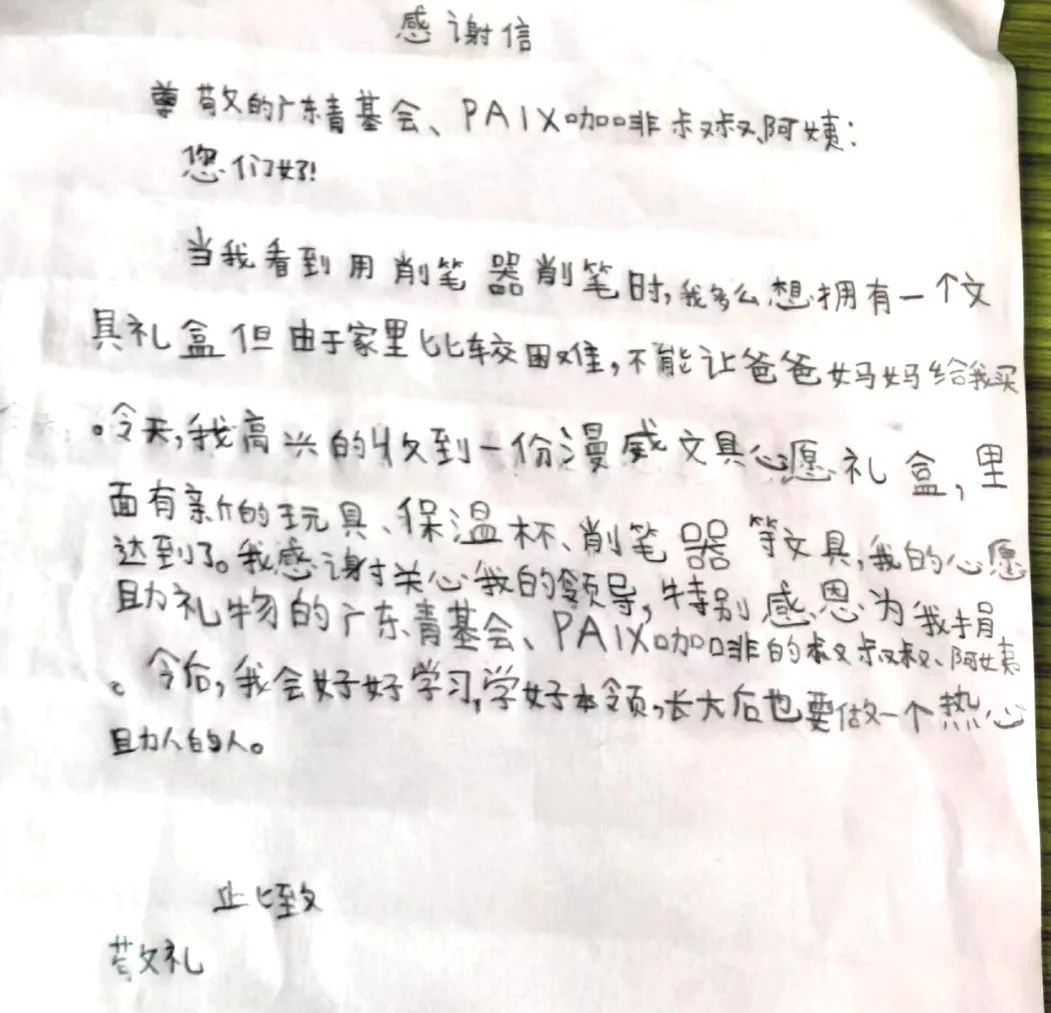 感谢信
尊敬的广东青基会、PAIX咖啡叔叔、阿姨:
您们好!
当我看到用削笔器削笔时,我多么想拥有一个文
具礼盒但由于家里比较困难,不能让爸爸妈妈给我买
。今天,我高兴的收到一份漫威文具心愿礼盒,里
面有新的玩具、保温杯、削笔器等文具,我的心愿
达到了。我感谢关心我的领导,特别感恩为我捐
助礼物的广东青基会、PAIX咖啡的叔叔、阿姨
。今后,我会好好学习,学好本领,长大后也要做一个热心
助人的人。
此致
敬礼